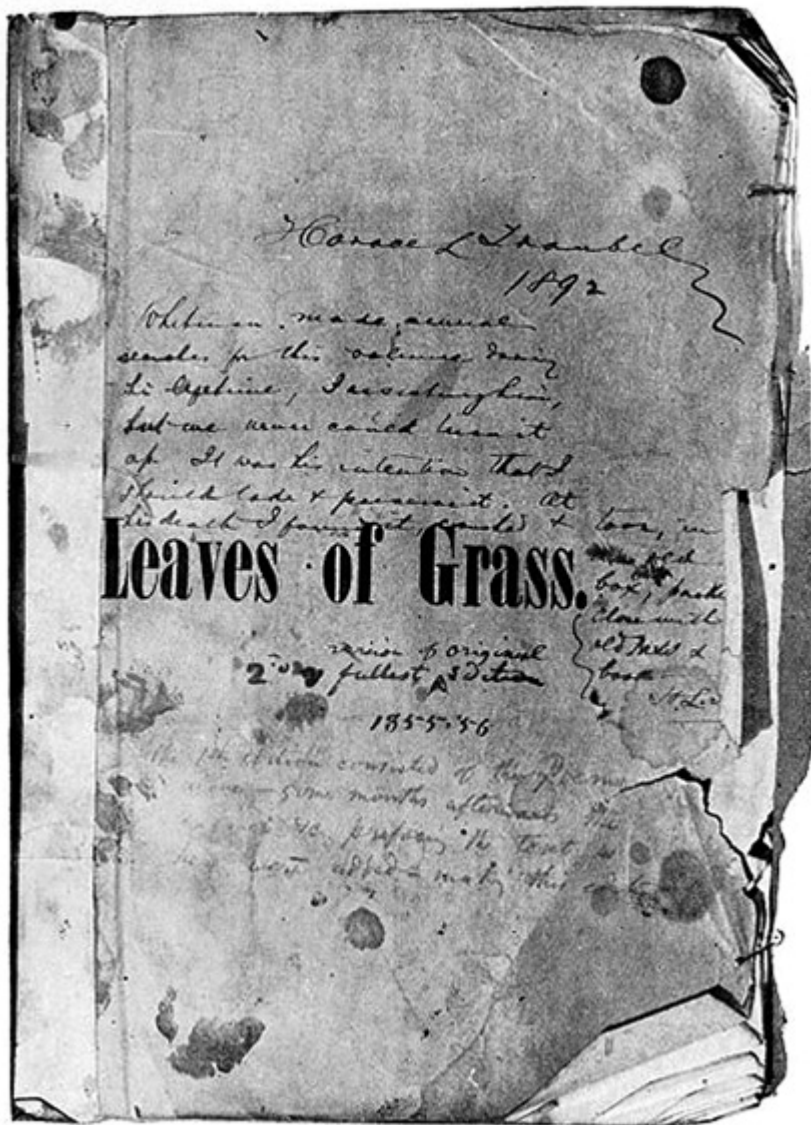 Horace L Traubel
1892
Whitman made several
searches for this volume during
his lifetime, I assisting him,
but we never could turn it
up It was his intention that I
should take & preserve it. At
his death I found it, & torn, in
an old
box,
close with
old &
book
Leaves of Grass.
version of original
2nd & fullest Edition
1855-'56
The 1st edition consisted of the Poems
alone — some months afterwards the
prefacing the text
was added making this